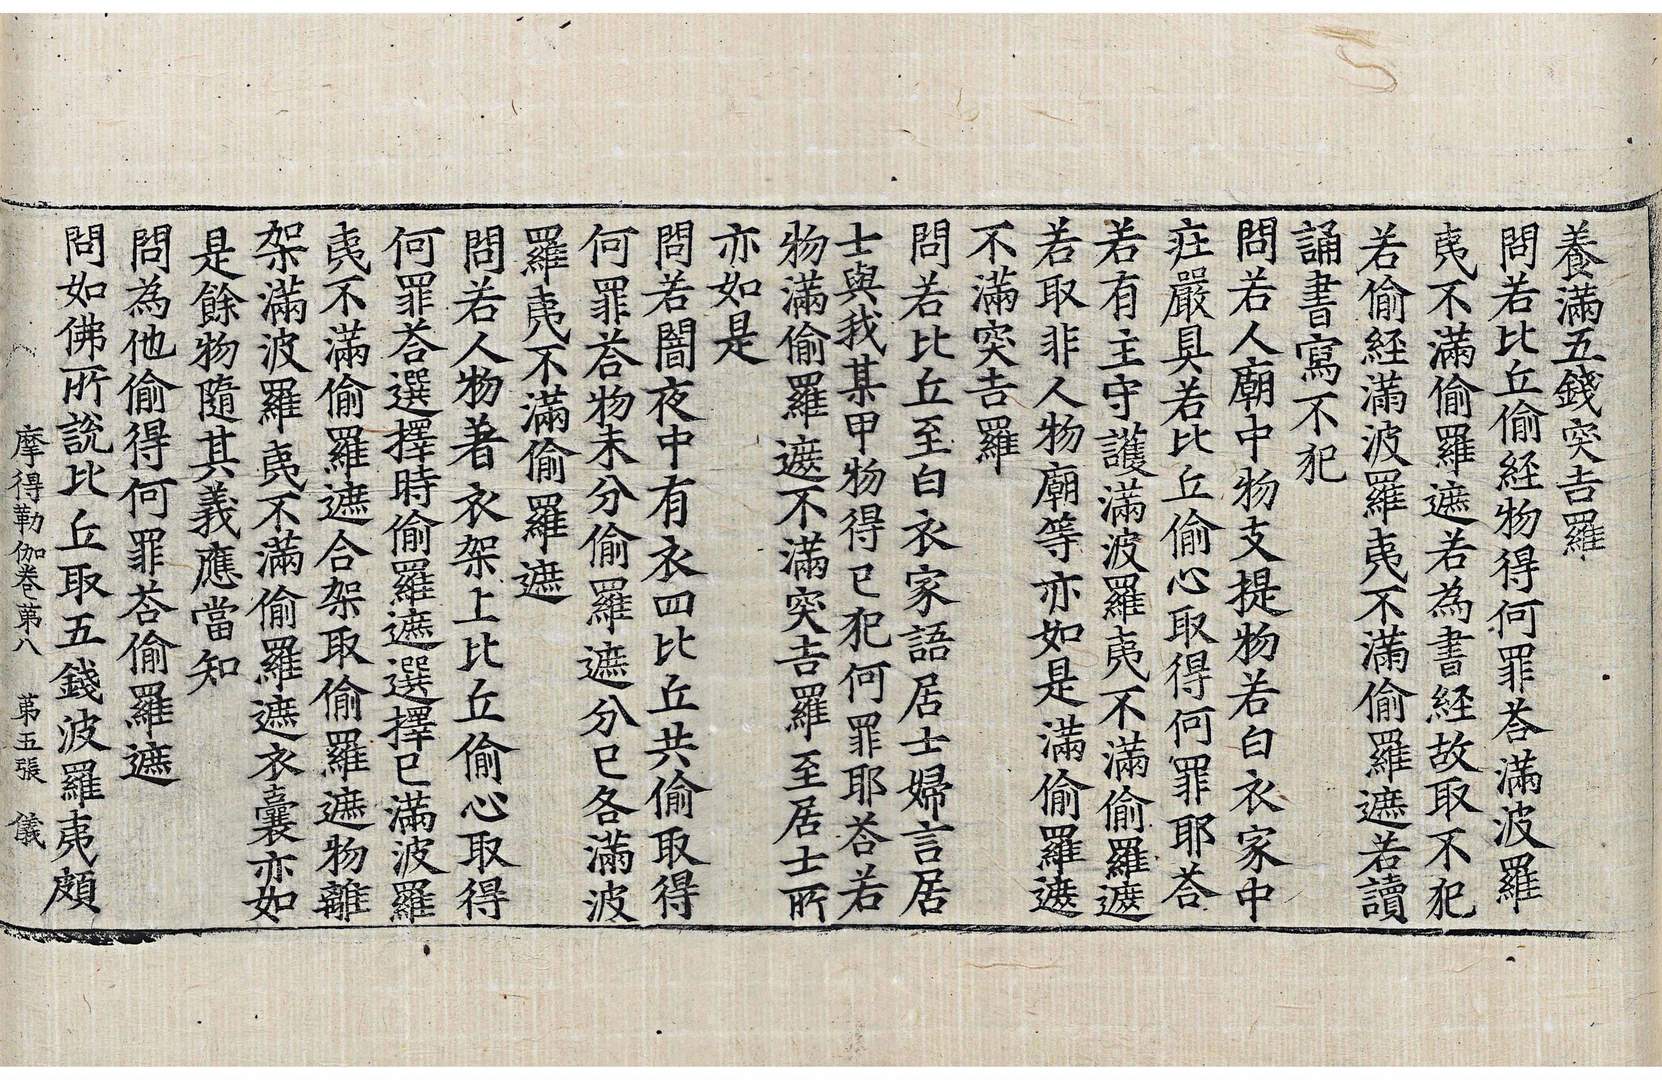 養滿五錢突吉羅
問若比丘偷経物得何罪荅滿波羅
夷不滿偷羅遮若為書経故取不犯
若偷経滿波羅夷不滿偷羅遮若讀
誦書寫不犯
問若人廟中物支提物若白衣家中
症嚴具若比丘偷心取得何罪耶荅
若有主守護滿波羅夷不滿偷羅遮
若取非人物廟等亦如是滿偷羅遮
不滿突吉羅
問若比丘至白衣家語居士婦言居
士與我某甲物得已犯何罪耶荅若
物滿偷羅遮不滿突吉羅至居士所
亦如是
問若闇夜中有衣四比丘共偷取得
何罪荅物未分偷羅遮分已各滿波
羅夷不滿偷羅遮
問若人物著衣架上比丘偷心取得
何罪荅選擇時偷羅遮選擇已滿波羅
夷不滿偷羅遮合架取偷羅遮物離
架滿波羅夷不滿偷羅遮衣囊亦如
是餘物隨其義應當知
問為他偷得何罪荅偷羅遮
問如佛所說比丘取五錢波羅夷頗
摩得勒伽卷苐八　苐五張　儀